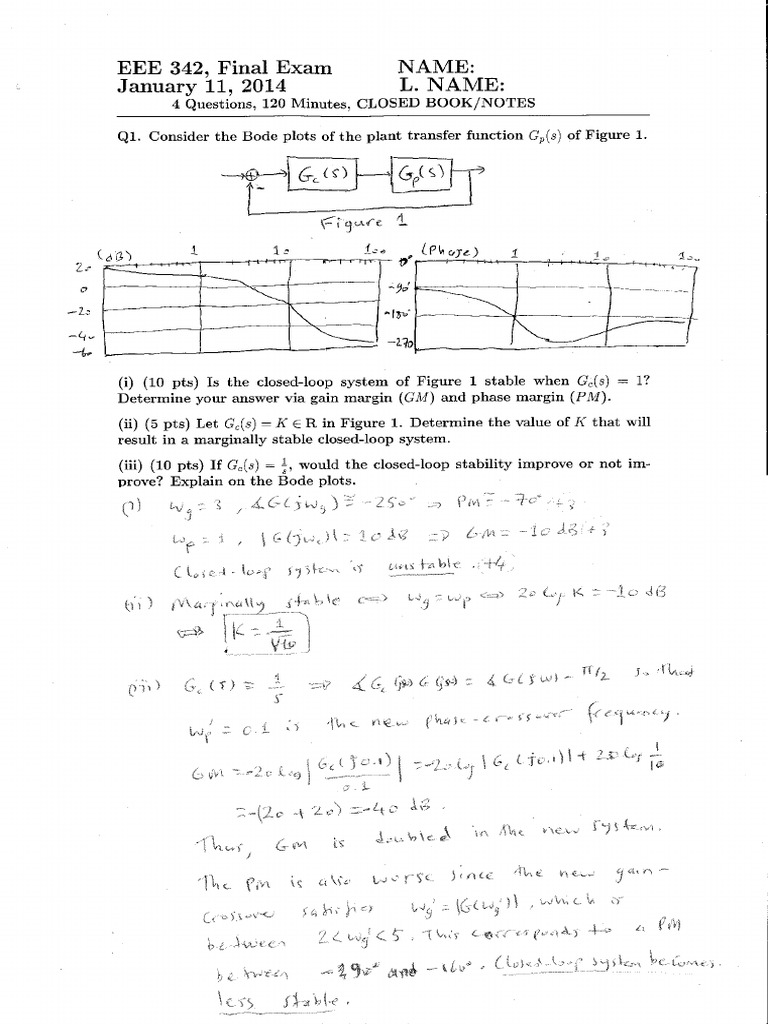 EEE 342, Final Exam NAME:
January 11, 2014 L. NAME:
4 Questions, 120 Minutes, CLOSED BOOK/NOTES
Q1. Consider the Bode plots of the plant transfer function Gp(s) of Figure 1.
+ - Gc(s) Gp(s)
Figure 1
(dB) 1 10 100 (Phase) 1 10 100
20 0°
0 -90°
-20 -180°
-40 -270
-60
(i) (10 pts) Is the closed-loop system of Figure 1 stable when Gc(s) = 1?
Determine your answer via gain margin (GM) and phase margin (PM).
(ii) (5 pts) Let Gc(s) = K ∈ R in Figure 1. Determine the value of K that will
result in a marginally stable closed-loop system.
(iii) (10 pts) If Gc(s) = 1/s, would the closed-loop stability improve or not im-
prove? Explain on the Bode plots.
(i) wg = 3 , ∡G(jwg) ≅ -250° ⇒ PM ≅ -70° +3
wp = 1 , |G(jwc)| = 10 dB ⇒ GM = -10 dB +3
Closed-loop system is unstable. +4
(ii) Marginally stable ⇔ wg = wp ⇔ 20 log K = -10 dB
⇔ K = 1/√10
(iii) Gc(s) = 1/s ⇒ ∡Gc(jw) G(jw) = ∡G(jw) - π/2 so that
wp' = 0.1 is the new phase-crossover frequency.
GM = -20 log |Gc(j0.1)/0.1| = -20 log |Gc(j0.1)| + 20 log 1/10
= -(20 + 20) = -40 dB.
Thus, GM is doubled in the new system.
The PM is also worse since the new gain-
crossover satisfies wg' = |G(wg')|, which is
between 2 < wg' < 5. This corresponds to a PM
between -290° and -160°. Closed-loop system becomes
less stable.